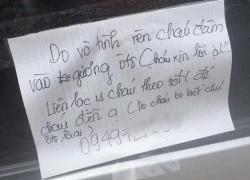 Do vô tình nên cháu đâm
vào gương ôtô (cháu xin lỗi ạ!!
Liên lạc vs cháu theo số đt để
cháu đền ạ (Do cháu ko biết chủ
ôtô là ai)
0949